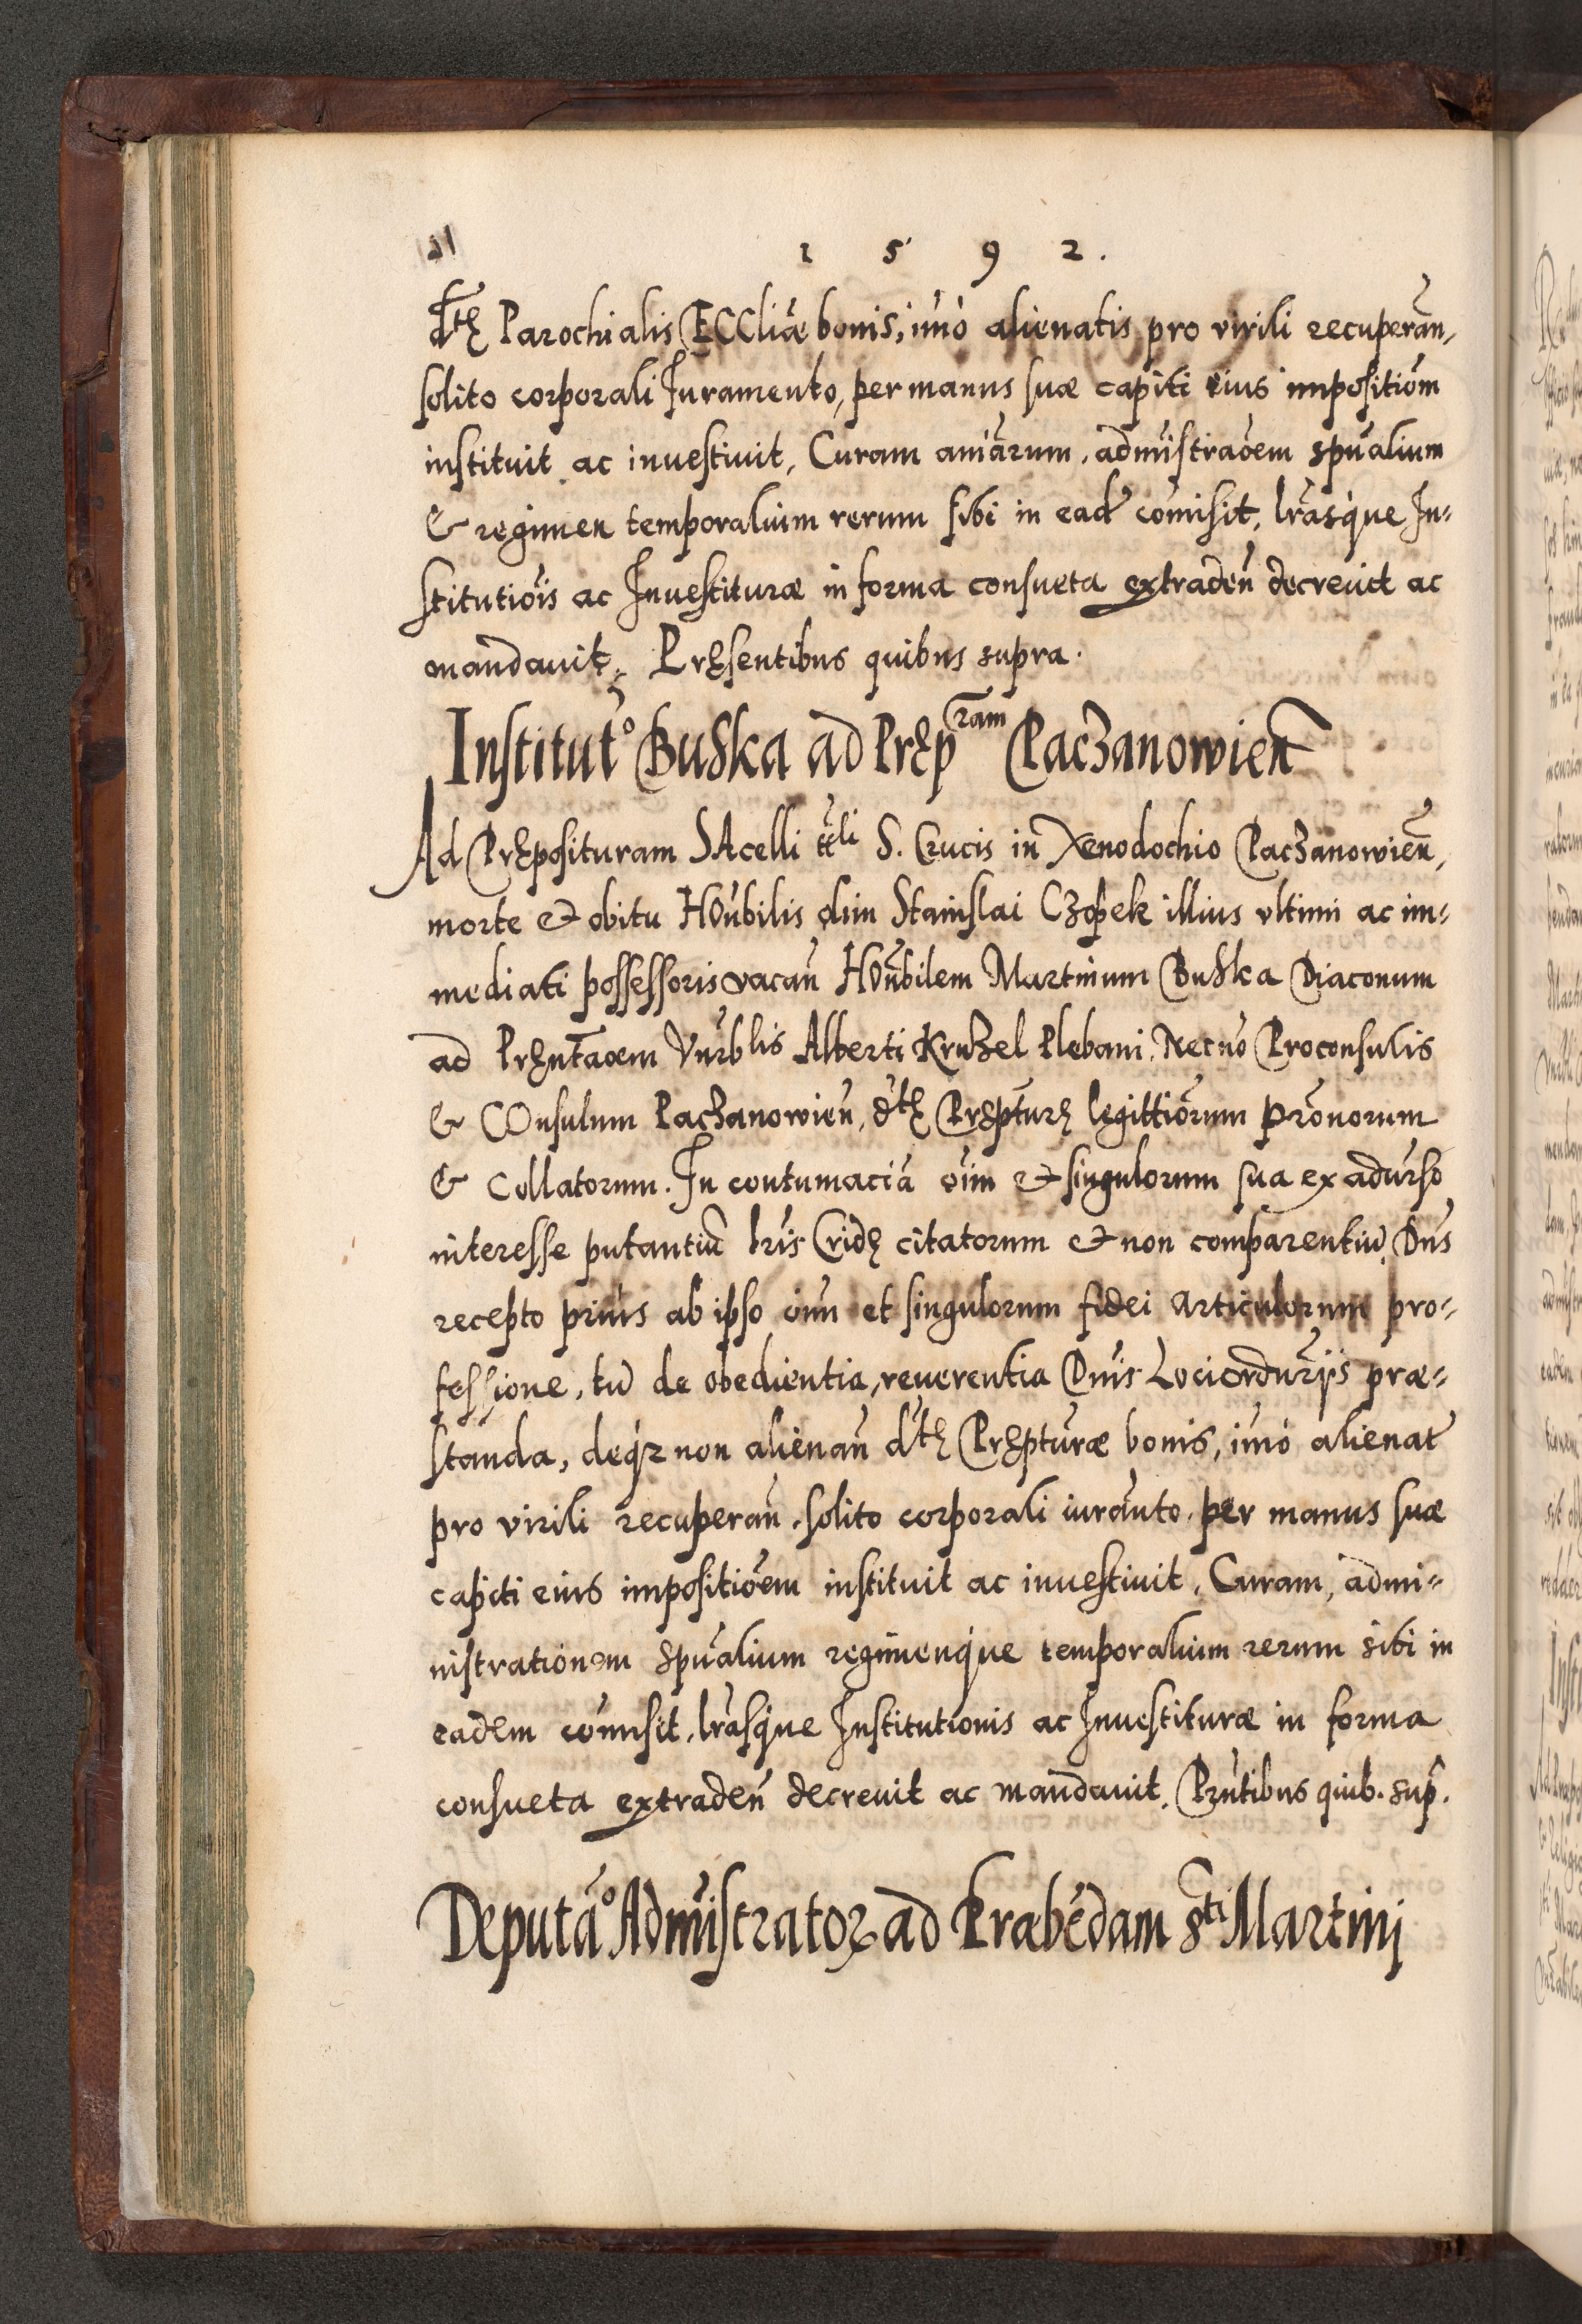 1592.
dctę Parochialis Eccliæ bonis, imò alienatis pro virili recuperan̄,
solito corporali Iuramento, per manus suæ capiti eius impositiōm
instituit ac inuestiuit, Curam aīārum, admīstraōem spūalium
& regimen temporalium rerum sibi in eadē com̄isit, lrāsque In-
stitutiōis ac Inuestituræ in forma consueta extraden̄ decreuit ac
mandauit. Pręsentibus quibus supra.
Institut͠o Buska ad Pręp͠ram Paczanowien̄
Ad Pręposituram SAcelli ttli S. Crucis in Xenodochio Paczanowien̄,
morte & obitu HOn̄bilis olim Stanislai Czopek illius vltimi ac im-
mediati possessoris vacan̄ HOn̄bilem Martinum Buska Diaconum
ad Pręntaōem Vn̄rblis Alberti Kruzel Plebani, Necnō Proconsulis
& COnsulum Paczanowien̄, dctę Pręptūrę legittiōrum prōnorum
& Collatorum. In contumaciā oīm & singulorum sua ex aduerso
interesse putantiū lrīs Cridę citatorum & non comparentiū, Dn̄s
recepto prius ab ipso oīm et singulorum fidei articulorum pro-
fessione, tū de obedientia, reuerentia Dn̄is Lociordn̄rijs præ-
standa, deq́z non alienan̄ dctę Pręptūræ bonis, imò alienat͠
pro virili recuperan̄, solito corporali iurām̄to, per manus suæ
capiti eius impositiōem instituit ac inuestiuit, Curam, admi-
nistrationem spūalium regimenq́ue temporalium rerum sibi in
eadem com̄isit, lrāsq́ue Institutionis ac Inuestituræ in forma
consueta extraden̄ decreuit ac mandauit. Prn̄tibus quib. sup̄.
Deputāo Admīstrator ad Præbēdam Sti Martini